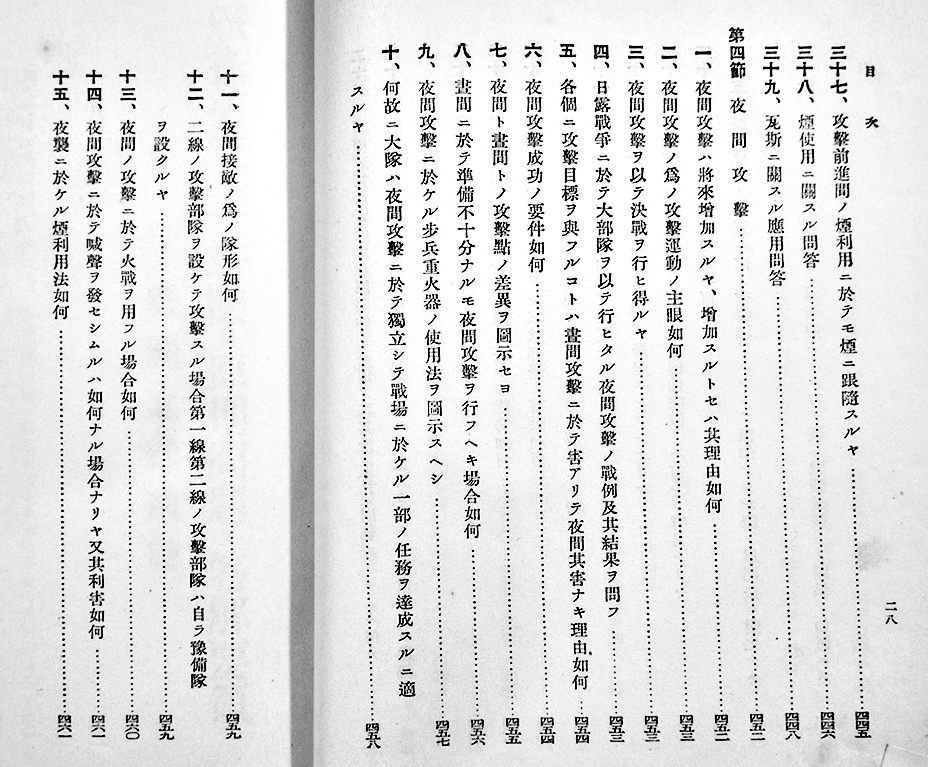 目次
三十七、攻擊前進間ノ煙利用ニ於テモ煙ニ跟隨スルヤ……四四五
三十八、煙使用ニ關スル問答……四四六
三十九、瓦斯ニ關スル應用問答……四四八
第四節 夜間攻擊……四五二
一、夜間攻擊ハ將來增加スルヤ、增加スルトセハ其理由如何……四五二
二、夜間攻擊ノ爲ノ攻擊運動ノ主眼如何……四五三
三、夜間攻擊ヲ以テ決戰ヲ行ヒ得ルヤ……四五三
四、日露戰爭ニ於テ大部隊ヲ以テ行ヒタル夜間攻擊ノ戰例及其結果ヲ問フ……四五三
五、各個ニ攻擊目標ヲ與フルコトハ晝間攻擊ニ於テ害アリテ夜間其害ナキ理由如何……四五四
六、夜間攻擊成功ノ要件如何……四五四
七、夜間ト晝間トノ攻擊點ノ差異ヲ圖示セヨ……四五五
八、晝間ニ於テ準備不十分ナルモ夜間攻擊ヲ行フヘキ場合如何……四五六
九、夜間攻擊ニ於ケル步兵重火器ノ使用法ヲ圖示スヘシ……四五七
十、何故ニ大隊ハ夜間攻擊ニ於テ獨立シテ戰場ニ於ケル一部ノ任務ヲ達成スルニ適
スルヤ……四五八
二八
十一、夜間接敵ノ爲ノ隊形如何……四五九
十二、二線ノ攻擊部隊ヲ設ケテ攻擊スル場合第一線第二線ノ攻擊部隊ハ自ラ豫備隊
ヲ設クルヤ……四五九
十三、夜間ノ攻擊ニ於テ火戰ヲ用フル場合如何……四六〇
十四、夜間攻擊ニ於テ喊聲ヲ發セシムルハ如何ナル場合ナリヤ又其利害如何……四六一
十五、夜襲ニ於ケル煙利用法如何……四六一